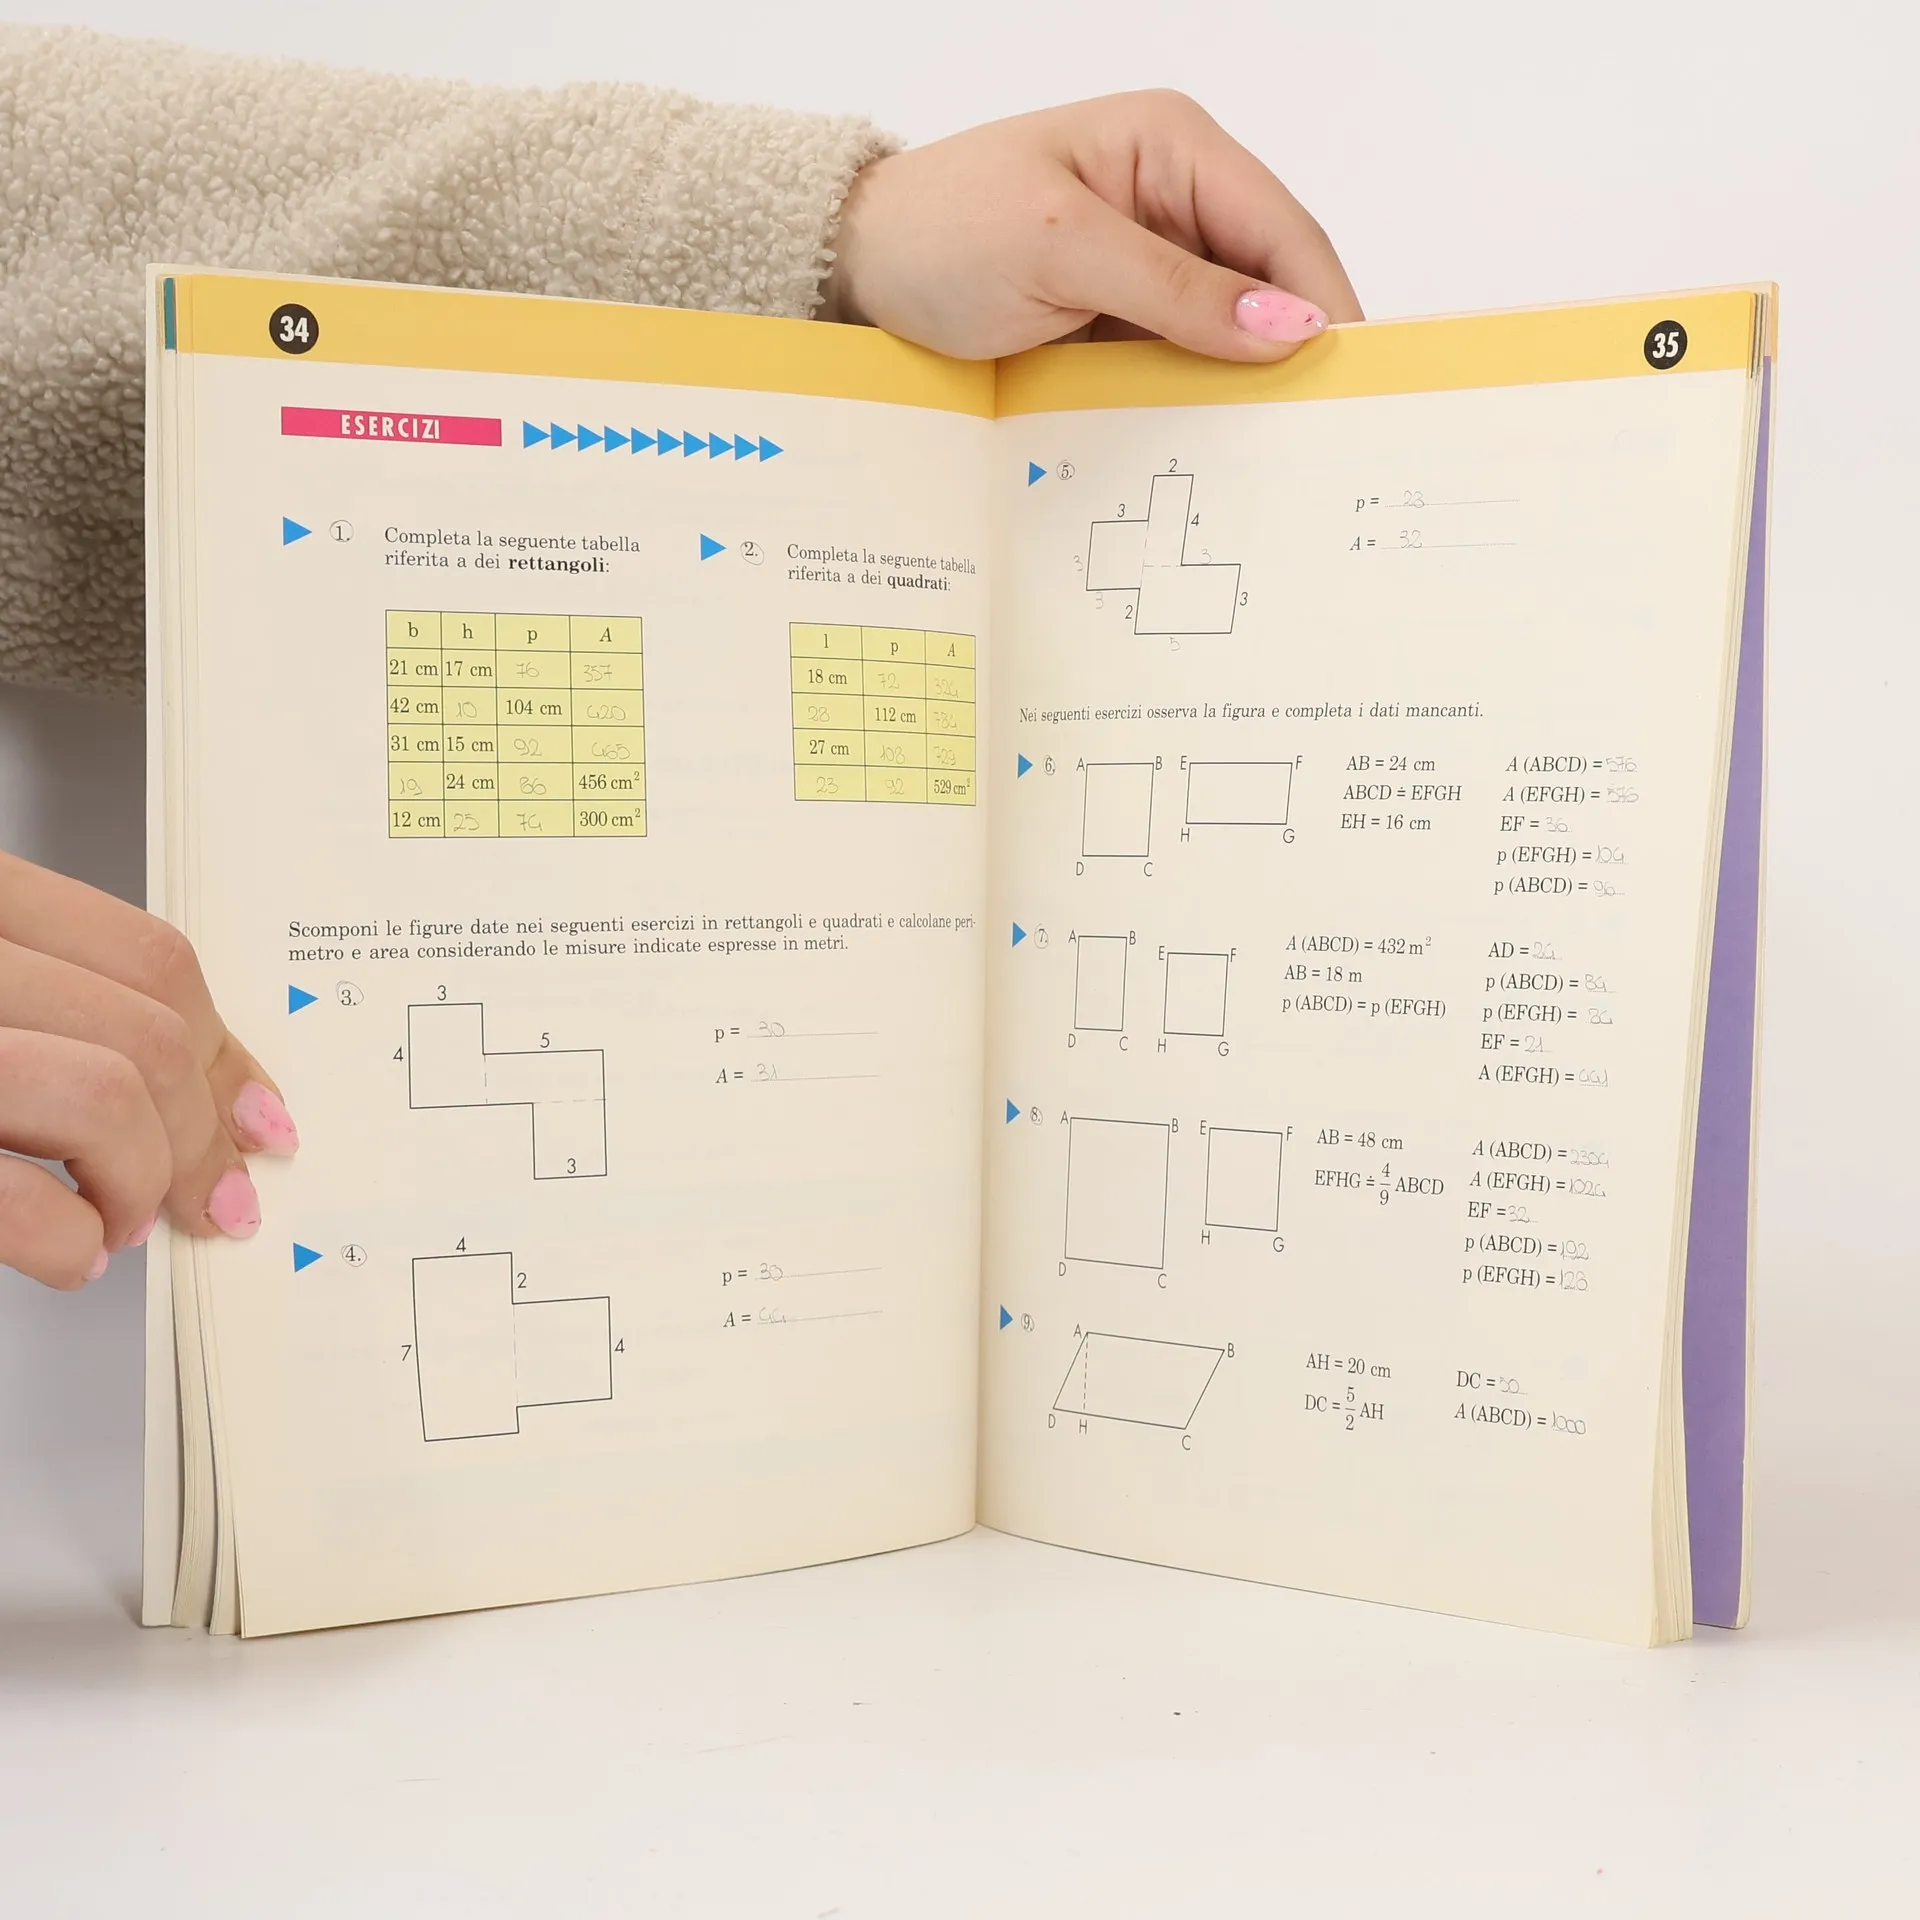 34
ESERCIZI
1.
Completa la seguente tabella
riferita a dei rettangoli:
b h p A
21 cm 17 cm 76 357
42 cm 10 104 cm 420
31 cm 15 cm 92 465
19 24 cm 86 456 cm²
12 cm 25 74 300 cm²
2.
Completa la seguente tabella
riferita a dei quadrati:
l p A
18 cm 72 324
28 112 cm 784
27 cm 108 729
23 92 529 cm²
Scomponi le figure date nei seguenti esercizi in rettangoli e quadrati e calcolane peri-
metro e area considerando le misure indicate espresse in metri.
3.
3
4
5
3
p = 30
A = 31
4.
4
2
7
4
p = 30
A = 44
35
5.
2
3
4
3
3
3
2
3
5
p = 28
A = 32
Nei seguenti esercizi osserva la figura e completa i dati mancanti.
6.
A B E F
H G
D C
AB = 24 cm
ABCD ≐ EFGH
EH = 16 cm
A (ABCD) = 576
A (EFGH) = 576
EF = 36
p (EFGH) = 104
p (ABCD) = 96
7.
A B
E F
D C H G
A (ABCD) = 432 m²
AB = 18 m
p (ABCD) = p (EFGH)
AD = 24
p (ABCD) = 84
p (EFGH) = 84
EF = 21
A (EFGH) = 441
8.
A B E F
H G
D C
AB = 48 cm
EFHG ≐ 4/9 ABCD
A (ABCD) = 2304
A (EFGH) = 1024
EF = 32
p (ABCD) = 192
p (EFGH) = 128
9.
A B
D H C
AH = 20 cm
DC = 5/2 AH
DC = 50
A (ABCD) = 1000